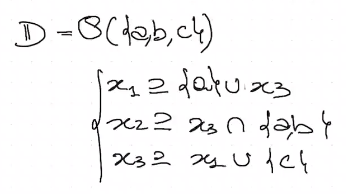 𝔻 = ℘({a,b,c})
x1 ⊇ {a} ∪ x3
x2 ⊇ x3 ∩ {a,b}
x3 ⊇ x1 ∪ {c}